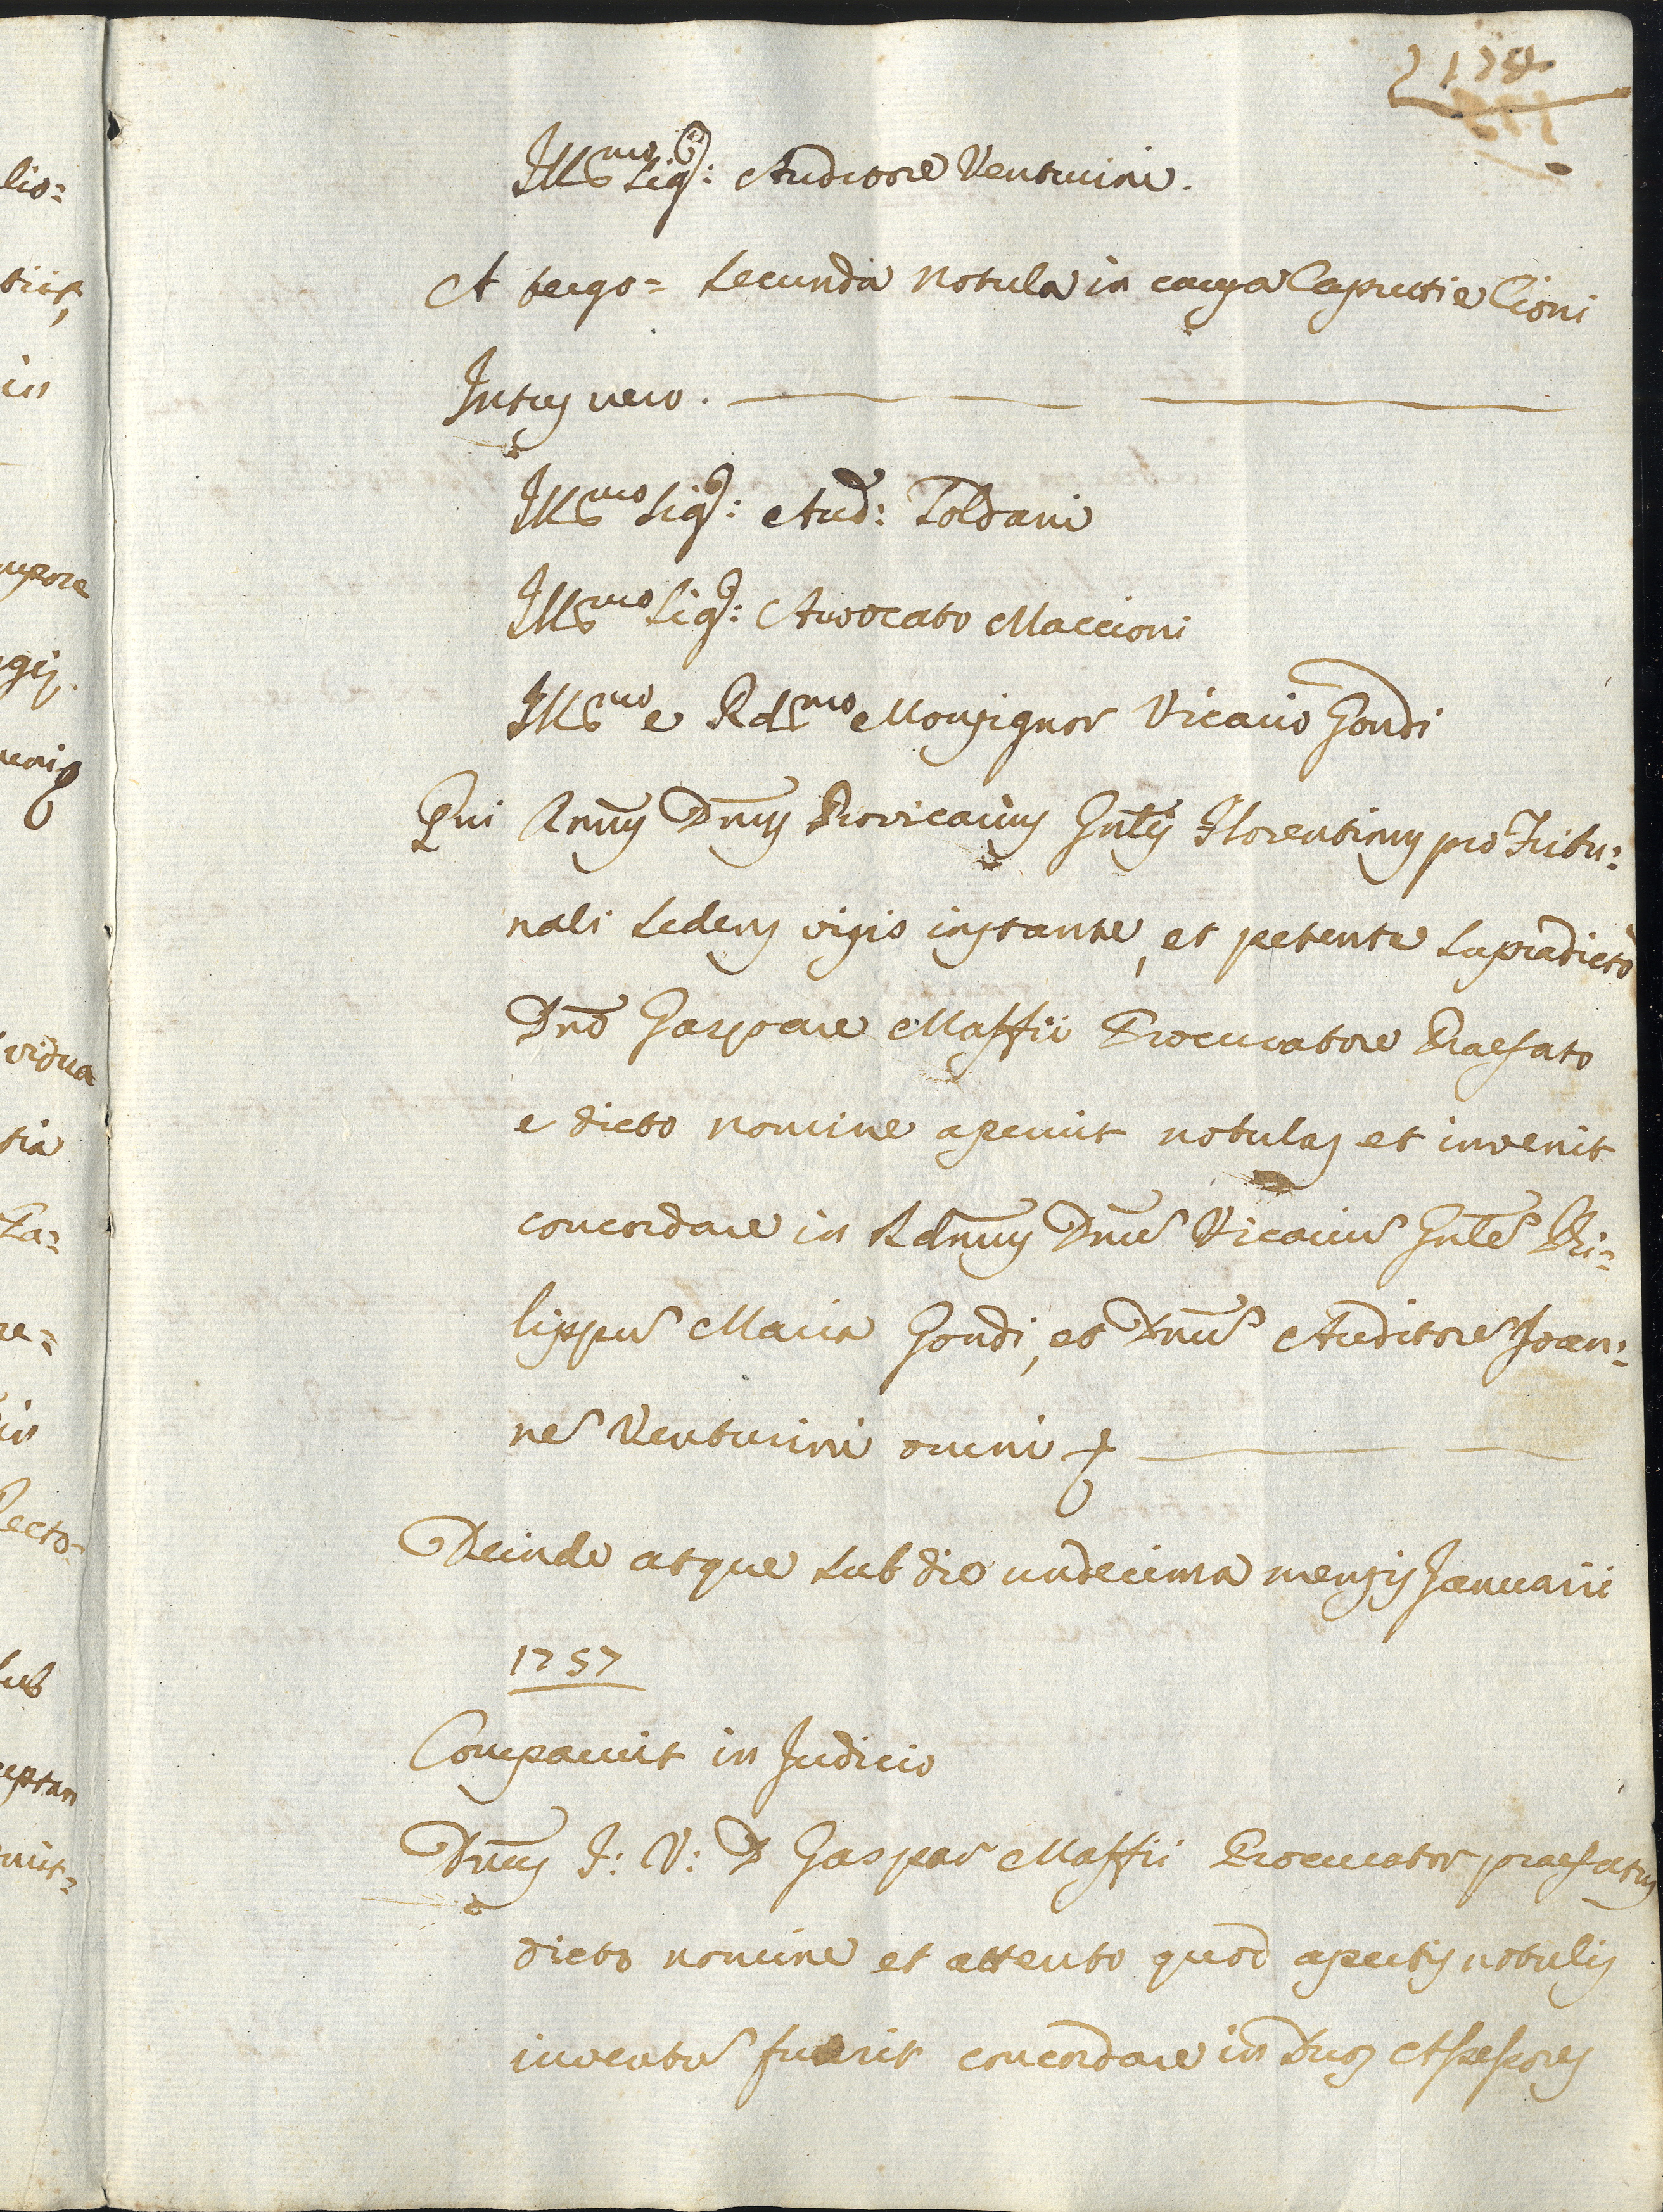 178
Ill.mo Sig.r: Auditore Venturini.
A tergo = Secunda Notula in causa Caprettie Cioni
Intus vero.
Ill.mo Sig.r: Aud: Soldani
Ill.mo Sig.r: Avvocato Maccioni
Ill.mo e Rd.mo Monsignor Vicario Gondi
Qui Rmus Dnus Provicarius Gnlis Florentinus pro Tribu:
nali sedens visis instante, et petente supradicto
Dno Gaspare Maffii Procuratore Praefato
e dicto nomine aperuit notulas et invenit
concordare in Rdmum Dnum Vicarium Gnlem Phi:
lippum Maria Gondi, et Dnum Auditorem Joan:
nem Venturini omni
Deinde atque sub die undecima mensis Januarii
1757
Comparuit in Judicio
Dnus J: V: D Gaspar Maffii Procurator praefatus
dicto nomine et attento quod apertis notulis
inventum fuerit concordare in Duos Assessores
lio=
in
vidua
tia
in
sub